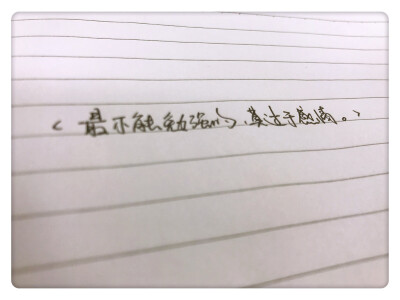 〈最不能勉强的,莫过于感情。〉